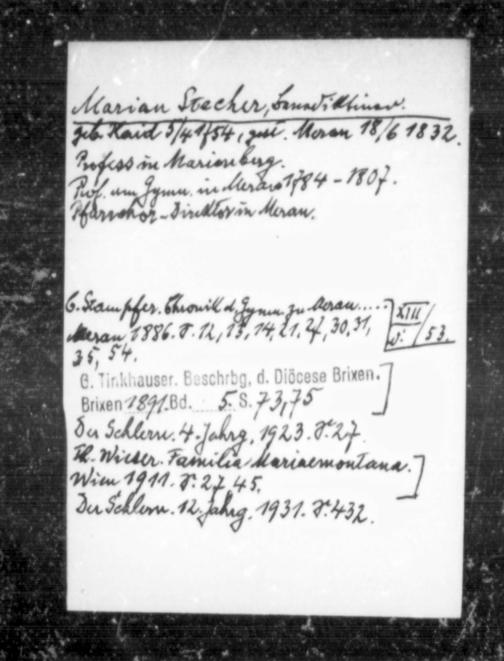 Marian Stecher, Benediktiner.
geb. Haid 5/4 1754, gest. Meran 18/6 1832.
Profess in Marienberg.
Prof. am Gymn. in Meran 1784 - 1807.
Pfarrchor-Direktor in Meran.
C. Stampfer. Chronik d. Gymn. zu Meran.....
XIII
Meran 1886. S. 12, 13, 14, 21, 27, 30, 31,
/53.
35, 54.
G. Tinkhauser. Beschrbg. d. Diöcese Brixen.
Brixen 1891. Bd. 5. S. 73, 75
Der Schlern. 4. Jahrg. 1923. S. 27.
Wieser. Familia Mariaemontana.
Wien 1911. S. 27 45.
Der Schlern. 12. Jahrg. 1931. S. 432.